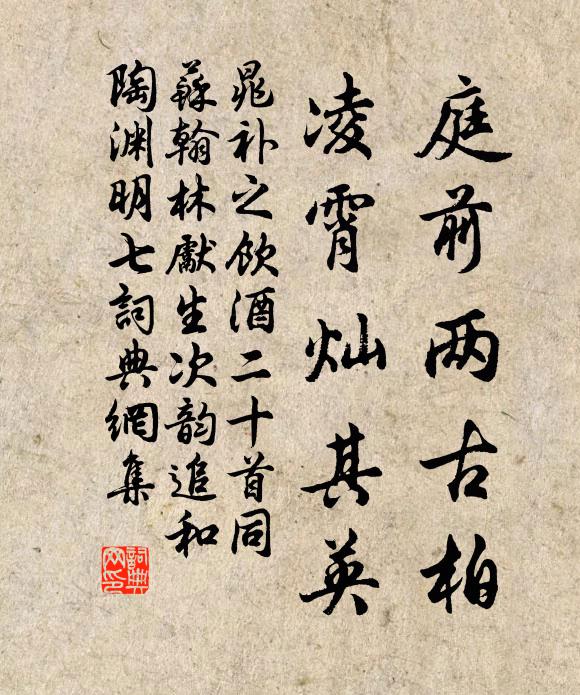 庭前两古柏
凌霄灿其英
晁补之饮酒二十首同
蘇翰林獻生次韵追和
陶渊明七詞典網集
詞典网印